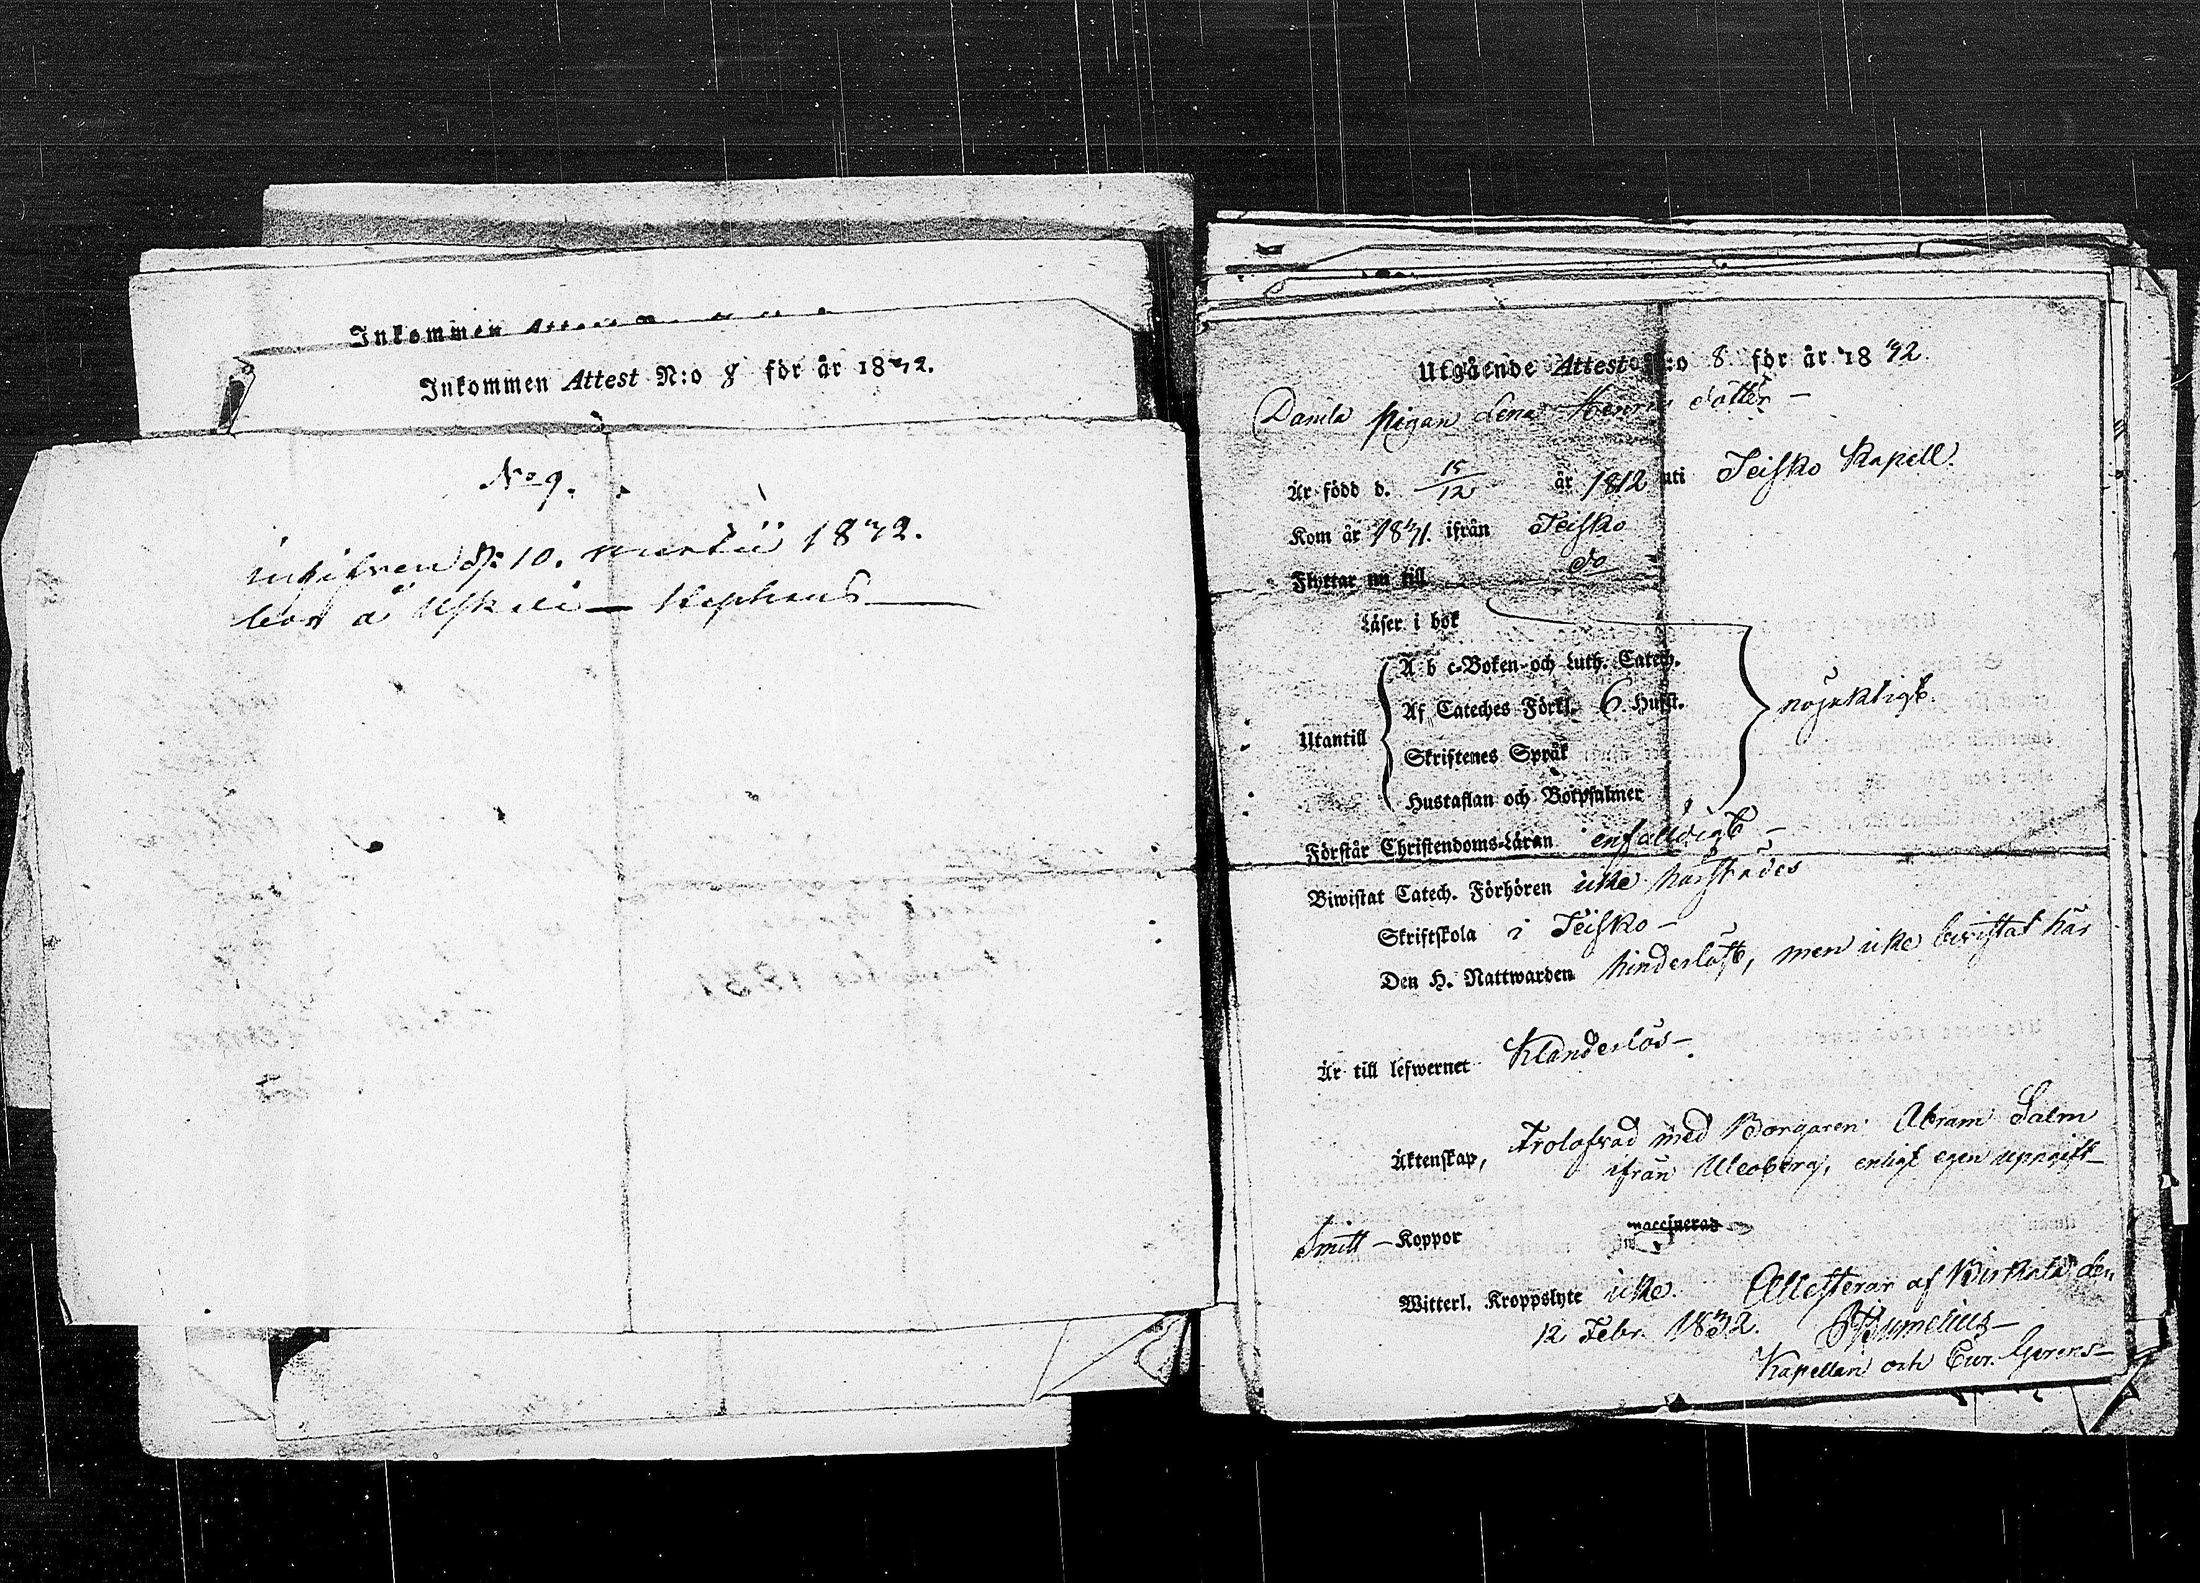 Inkommen Attest N:o 8 för år 1832.
No 9.
ingifven d: 10. martii 1832.
bor å Uskali — Stephans
Utgående Attest N:o 8 för år 1832.
Damla Pigan Lena Henrics dotter —
Är född d. 15/12 år 1812 uti Teisko Kapell.
Kom år 1831. ifrån Teisko
Flyttar nu till do
Läser i bok
A b c-Boken och Luth. Catech.
Af Cateches Förkl. 6 Hufst.
nöjaktigt.
Utantill
Skriftenes Språk
Hustaflan och Botpsalmer
Förstår Christendoms-Läran enfaldigt —
Biwistat Catech. Förhören icke härstädes
Skriftskola i Teisko —
Den H. Nattwarden hinderlöst, men icke bevistat här
Är till lefwernet Klanderlös —.
Äktenskap, Trolofvad med Borgaren Abram Salm
ifrån Uleoborg, enligt egen uppgift —
Smitt — Koppor vaccinerad
Witterl. Kroppslyte icke. Attesterar af Birkala den
12 Febr. 1832.
Kapellan och Cur. Gerens —